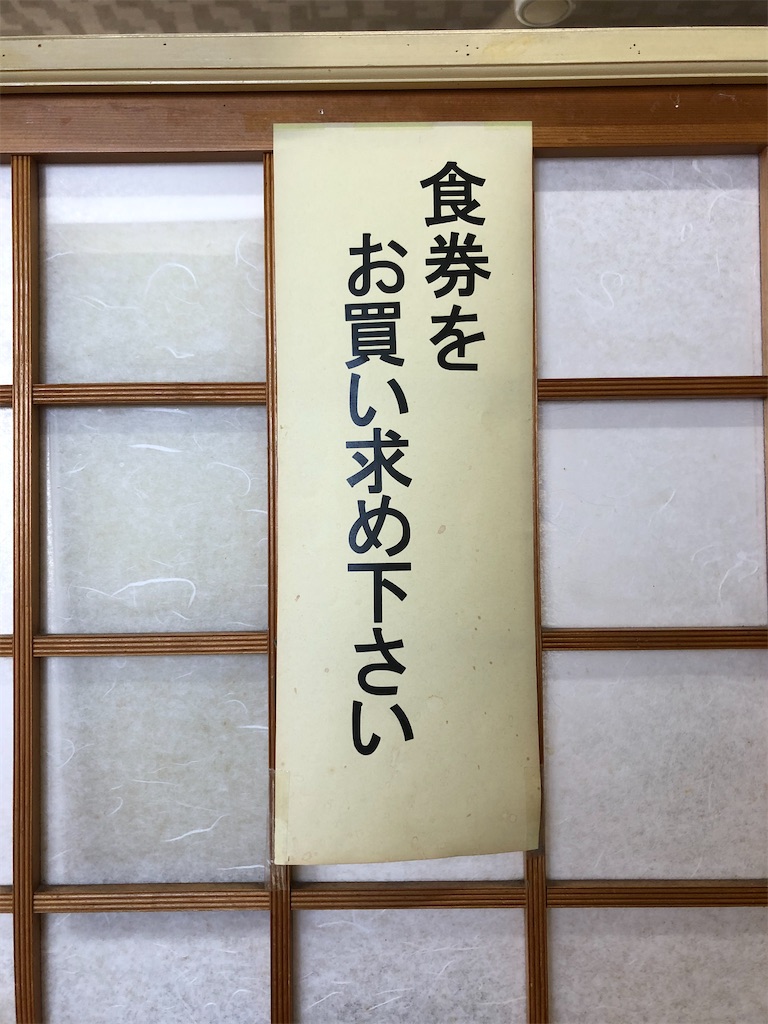 食券を
お買い求め下さい